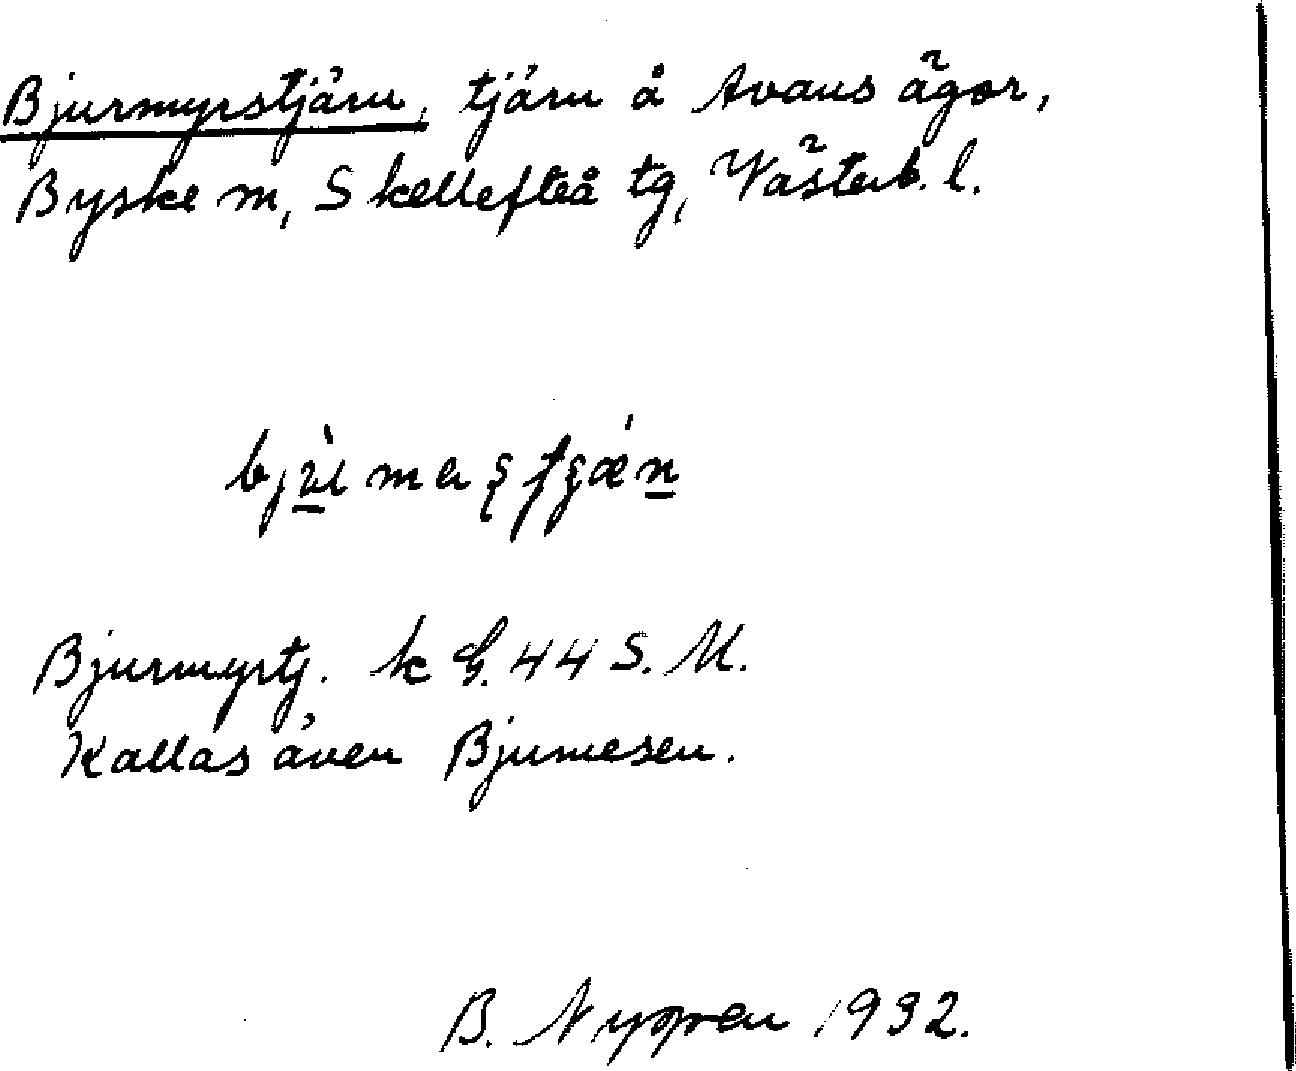 Bjurmyrstjärn, tjärn å Avans ägor,
Byske sn, Skellefteå tg, Västerb. l.
Bjurmyrtj. k G. 44 S. M.
Kallas även Bjurmesen.
B. Nygren 1932.